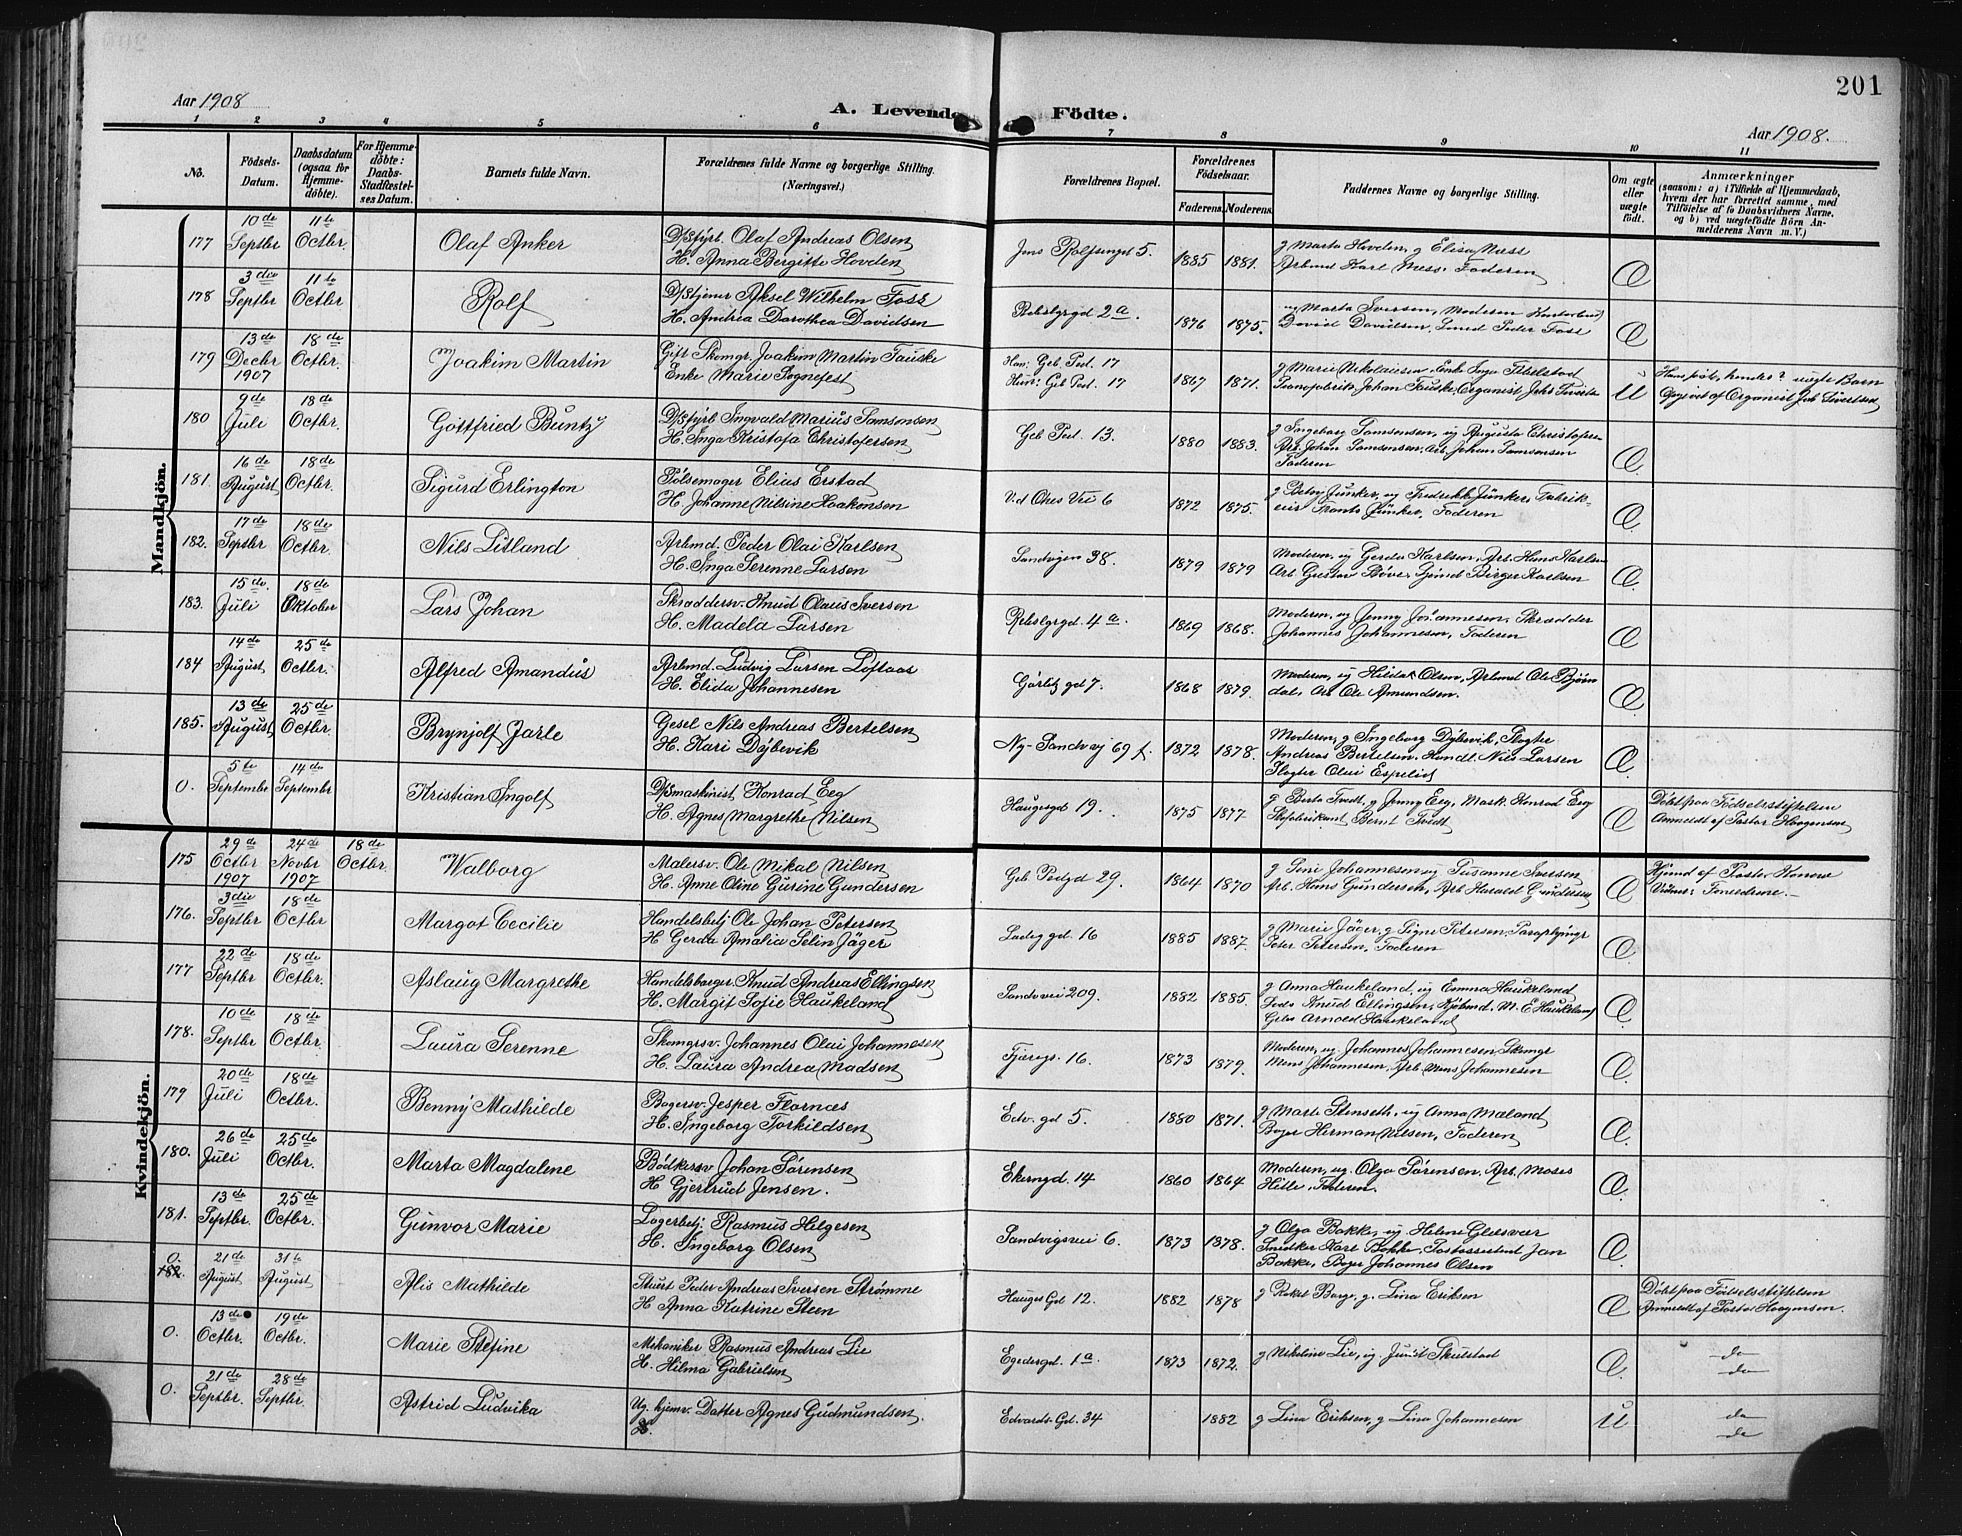 201
Aar 1908
A. Levende Födte.
Aar 1908.
1 2 3 4 5 6 7 8 9 10 11
No.
Födsels-Datum.
Daabsdatum (ogsaa for Hjemmedöbte).
For Hjemmedöbte: Daabs-Stadfæstelses Datum.
Barnets fulde Navn.
Forældrenes fulde Navne og borgerlige Stilling.
(Næringsvei.)
Forældrenes Bopæl.
Forældrenes Födselsaar.
Faderens. Moderens.
Faddernes Navne og borgerlige Stilling.
Om ægte eller uægte födt.
Anmærkninger
(saasom: a) i Tilfælde af Hjemmedaab, hvem der har forrettet samme, med Tilföielse af to Daabsvidners Navne, og b) ved uegtefödte Börn Anmelderens Navn m. V.)
Mandkjön.
177 10de Septbr 11te Octbr. Olaf Anker
D/Sfyrb. Olaf Andreas Olsen
H. Anna Bergitte Hovden
Jens Rolfsengt 5. 1885 1881.
g Marta Hovden, g Elisa Næss
Arbmd Karl Næss. Faderen
Æ
178 3die Septbr 11te Octbr Rolf
D/Stjener Aksel Wilhelm Foss
H. Andrea Dorothea Davidsen
Rebslgrgd 2a. 1876 1875.
ug Marta Iversen, Moderen
David Davidsen, Smed Peder Foss
Æ
179 13de Decbr 1907 18de Octbr. Joakim Martin
Gift Skomgr. Joakim Martin Tauske
Enke Marie Sognefest
Han: Geb Ped. 17
Hun: Geb Ped. 17
1867 1871.
g Marie Nikolaisen, Enke Inga
Johan Tauske, Organist Johs Sivertsen
U
Hans første, hendes? uægte Barn
Opgivet af Organist Joh Sivertsen
180 9de Juli 18de Octbr. Gottfried Buntz
D/Sfyrb Ingvald Marius Samsonsen
H. Inga Kristofa Christofersen
Geb Ped. 13. 1880 1883.
g Ingeborg Samsonsen, ug Augusta Christofersen
Arb. Johan Samsonsen, Arb. Johan Samsonsen
Faderen
Æ
181. 16de August 18de Octbr. Sigurd Erlington
Pølsemager Elias Erstad
H. Johanne Nilsine Haakonsen
Ved Ores Vei 6 1872 1875.
g Betsy Junker, ug Fredrikk Junker, Fabrik-
eier Frants Junker, Faderen
Æ
182. 17de Septbr 18de Octbr. Nils Litland
Arbmd. Peder Olai Karlsen
H. Inga Serenne Larsen
Sandvigen 38. 1879 1879
Moderen, ug Gerda Karlsen, Arb. Hans Karlsen
Arb. Gustav Bøve, Sjømd Birger Karlsen
Æ
183. 15de. Juli 18de Oktober Lars Johan
Skræddersv. Knud Olaus Iversen
H. Madela Larsen
Rebslgrgd. 4a. 1869 1868.
Moderen, ug Jenny Johannesen, Skrædder
Johannes Johannesen, Faderen
Æ
184 14de August 25de Octbr. Alfred Amandus
Arbmd. Ludvig Larsen Loftaas
H. Elida Johannesen
Görbitz gd 7. 1868 1879.
Moderen, ug Hilda Olsen, Arbmd Ole Bjørn
dal, Arb Ole Amundsen.
Æ
185. 13de August 25de Octbr. Brynjolf Jarle
Gesel Nils Andreas Bertelsen
H. Kari Dybevik
Ny-Sandvej 69 f. 1872 1878.
Moderen, g Ingeborg Dybevik, Slagter
Andreas Bertelsen, Handl. Nils Larsen
Slagter Olai Espelid
Æ
0. 5te September 14de Septembr Kristian Ingolf
D/Smaskinist Konrad Eeg
H. Agnes Margrethe Nilsen
Haugesgd 19. 1875 1877
g Berta Tvedt, g Jenny Eeg, Mask. Konrad Eeg
Skofabrikant Bernt Tvedt
Æ
Døbt paa Födselsstiftelsen
Anmeldt af Pastor Haagensen
Kvindekjön.
175 29de Octbr 1907 24de Novbr 1907 18de Octbr. Walborg
Malersv. Ole Mikal Nilsen
H. Anne Oline Gurine Gundersen
Geb Pedgd 29. 1864 1870
g Sine Johannesen ug Susanne Iversen
Arb. Hans Gundersen, Arb Harald Gundersen
Æ
Hjemd af Pastor Honoré
Vidner: Forældrene.
176. 3die Septbr 18de Octbr Margot Cecilie
Handelsbetj Ole Johan Petersen
H Gerda Amalia Selin Jäger
Ladeg gd. 16 1885 1887.
g Marie Jäger, g Signe Petersen, Paraplymgr
Peter Petersen, Faderen
Æ
177 22de Septbr 18de Octbr. Aslaug Margrethe
Handelsborger Knud Andreas Ellingsen
H. Margit Sofie Haukeland
Sandvvei 209. 1882 1885.
g Anna Haukeland, ug Emma Haukeland
Knud Ellingsen, Kjøbmd. M. E Haukeland
Arnold Haukeland
Æ
178. 10de Septbr 18de Octbr. Laura Serenne
Skomgrsv. Johannes Olai Johannesen
H. Laura Andrea Madsen
Fjæregs. 16. 1873 1879.
Moderen, ug. Johannes Johannesen, Skomgr
Mons Johannesen, Arb Mons Johannesen
Æ
179 20de Juli 18de Octbr. Benny Mathilde
Bagersv. Jesper Flornæs
H. Ingeborg Torkildsen
Edv. gd 5. 1880 1871.
g Marta Stenseth, ug Anna Maland
Bager Herman Nilsen, Faderen
Æ
180. 26de Juli 25de Octbr. Marta Magdalene
Bødkersv. Johan Sørensen
H Gjertrud Jensen.
Ekerngd. 14 1860 1864
Moderen, ug. Olga Sørensen, Arb. Moses
Hille, Faderen.
Æ
181. 13de Septbr 25de Octbr. Gunvor Marie
Lagerbetj: Rasmus Helgesen
H. Ingeborg Olsen
Sandvigsvei 6. 1873 1878.
g Olga Bakke, ug Helene Glesvær
Snedker Karl Bakke, Postassistent Jan
Bakke, Bager Johannes Olsen
Æ
0. 182. 21de August 31te August Alis Mathilde
Stuert Peder Andreas Iversen Strømme
H Anna Katrine Steen
Hauges Gd 12. 1882 1878
g Rakel Barge, g. Lina Eriksen
Æ
Døbt paa Födselsstiftelsen
Anmeldt af Pastor Haagensen.
0. 13de Octbr. 19de Octbr. Marie Stefine
Mekaniker Rasmus Andreas Lie
H. Hilma Gabrielsen
Egedesgd. 1a. 1873 1872.
g Nikoline Lie, ug. Judit Skulstad
Æ
do
do
0. 21de Septbr. 28de Septbr. Astrid Ludvika
Ug. hjemv. Datter Agnes Gudmundsen
Edvards Gd. 34 1882
g Lina Eriksen, g Lina Johannesen
U
do
do